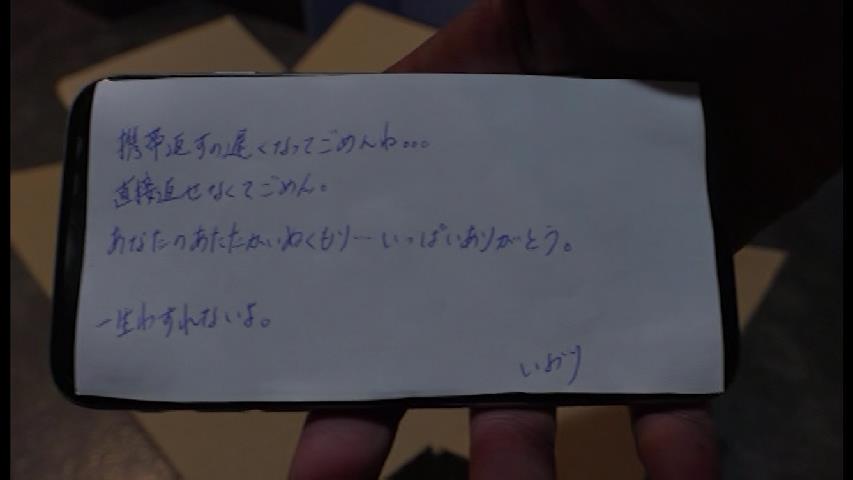 携帯返すの遅くなってごめんね...
直接返せなくてごめん。
あなたのあたたかいぬくもりーいっぱいありがとう。
一生わすれないよ。
いおり